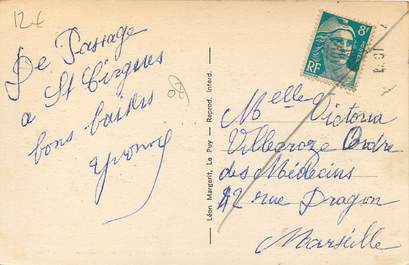 12€
De Passage
a St Cirgues
bons baisers
Yvonne
Léon Margerit, Le Puy — Reprod. Interd.
8F
RF
Melle Victoria
Villecroze Ordre
des Médecins
42 rue Dragon
Marseille